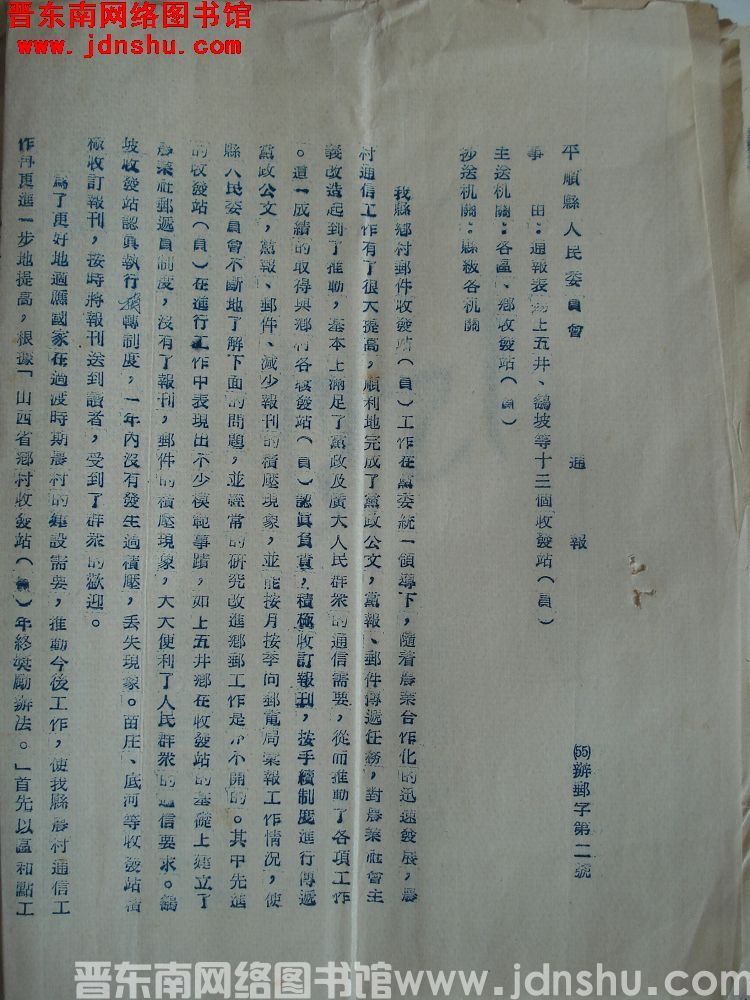 晋东南网络图书馆
www.jdnshu.com
平順縣人民委員會　通　報
(55)辦郵字第二號
事　由：通報表揚上五井、鵝坡等十三個收發站（員）
主送机關：各區、鄉收發站（員）
抄送机關：縣級各机關
我縣鄉村郵件收發站（員）工作在黨委統一領導下，隨着農業合作化的迅速發展，農
村通信工作有了很大提高，順利地完成了黨政公文，黨報、郵件傳遞任務，對農業社會主
義改造起到了推動，基本上滿足了黨政及廣大人民群眾的通信需要，從而推動了各項工作
。這一成績的取得與鄉村各收發站（員）認真負責，積極收訂報刊，按手續制度進行傳遞
黨政公文，黨報、郵件、減少報刊的積壓現象，並能按月按季向郵電局彙報工作情况，使
縣人民委員會不斷地了解下面的問題，並經常的研究改進鄉郵工作是分不開的。其中先進
的收發站（員）在進行工作中表現出不少模範事蹟，如上五井鄉在收發站的基礎上建立了
農業社郵遞員制度，沒有了報刊，郵件的積壓現象，大大便利了人民群眾的通信要求。鵝
坡收發站認真執行接轉制度，一年內沒有發生過積壓，丟失現象。苗庄、底河等收發站積
極收訂報刊，按時將報刊送到讀者，受到了群眾的歡迎。
爲了更好地適應國家在過渡時期農村的建設需要，推動今後工作，使我縣農村通信工
作再更進一步地提高，根據「山西省鄉村收發站（員）年終獎勵辦法。」首先以區和點工
晋东南网络图书馆www.jdnshu.com